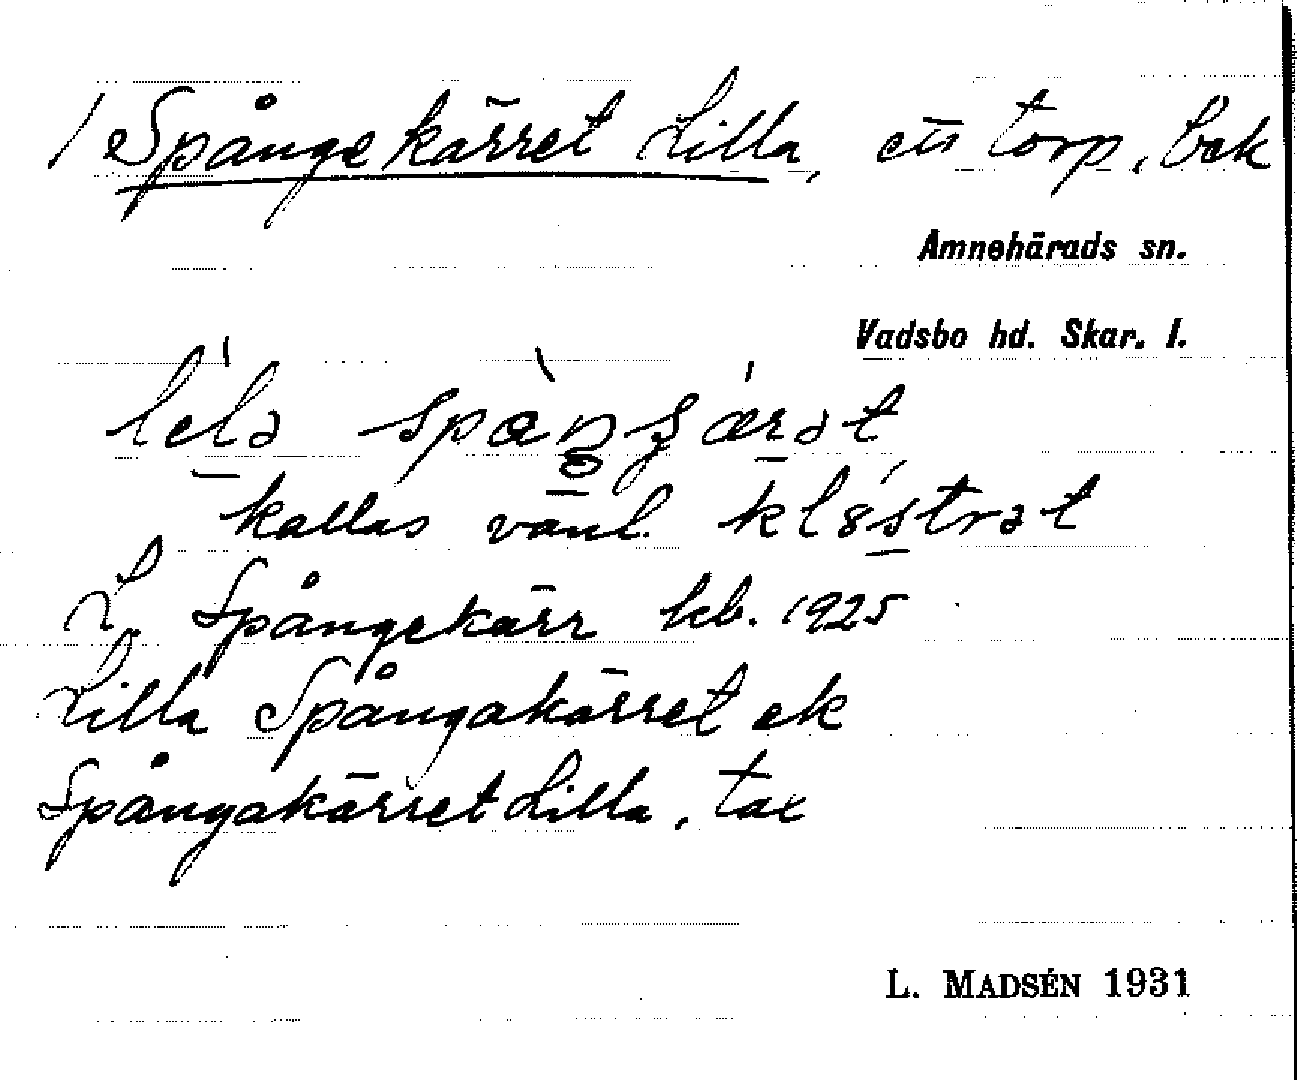 1 Spångekärret Lilla, ett torp, bek
Amnehärads sn.
Vadsbo hd. Skar. l.
kallas vanl. klåstrət
L. Spångekärr kb. 1925
Lilla Spångakärret ek
Spångakärret Lilla, tax
L. MADSÉN 1931